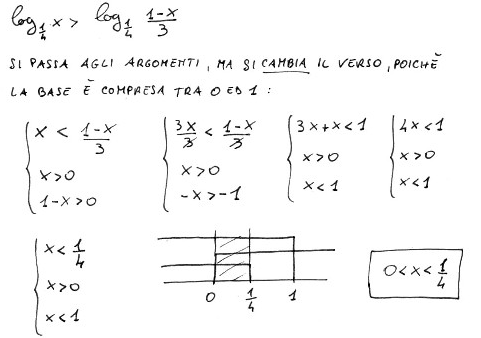 log_{1/4} x > log_{1/4} (1-x)/3
SI PASSA AGLI ARGOMENTI, MA SI CAMBIA IL VERSO, POICHÈ
LA BASE È COMPRESA TRA 0 ED 1 :
{ x < (1-x)/3 { 3x/3 < (1-x)/3 { 3x+x<1 { 4x<1
x>0 x>0 x>0 x>0
1-x>0 -x>-1 x<1 x<1
{ x < 1/4
x>0
x<1
0 1/4 1
0<x<1/4